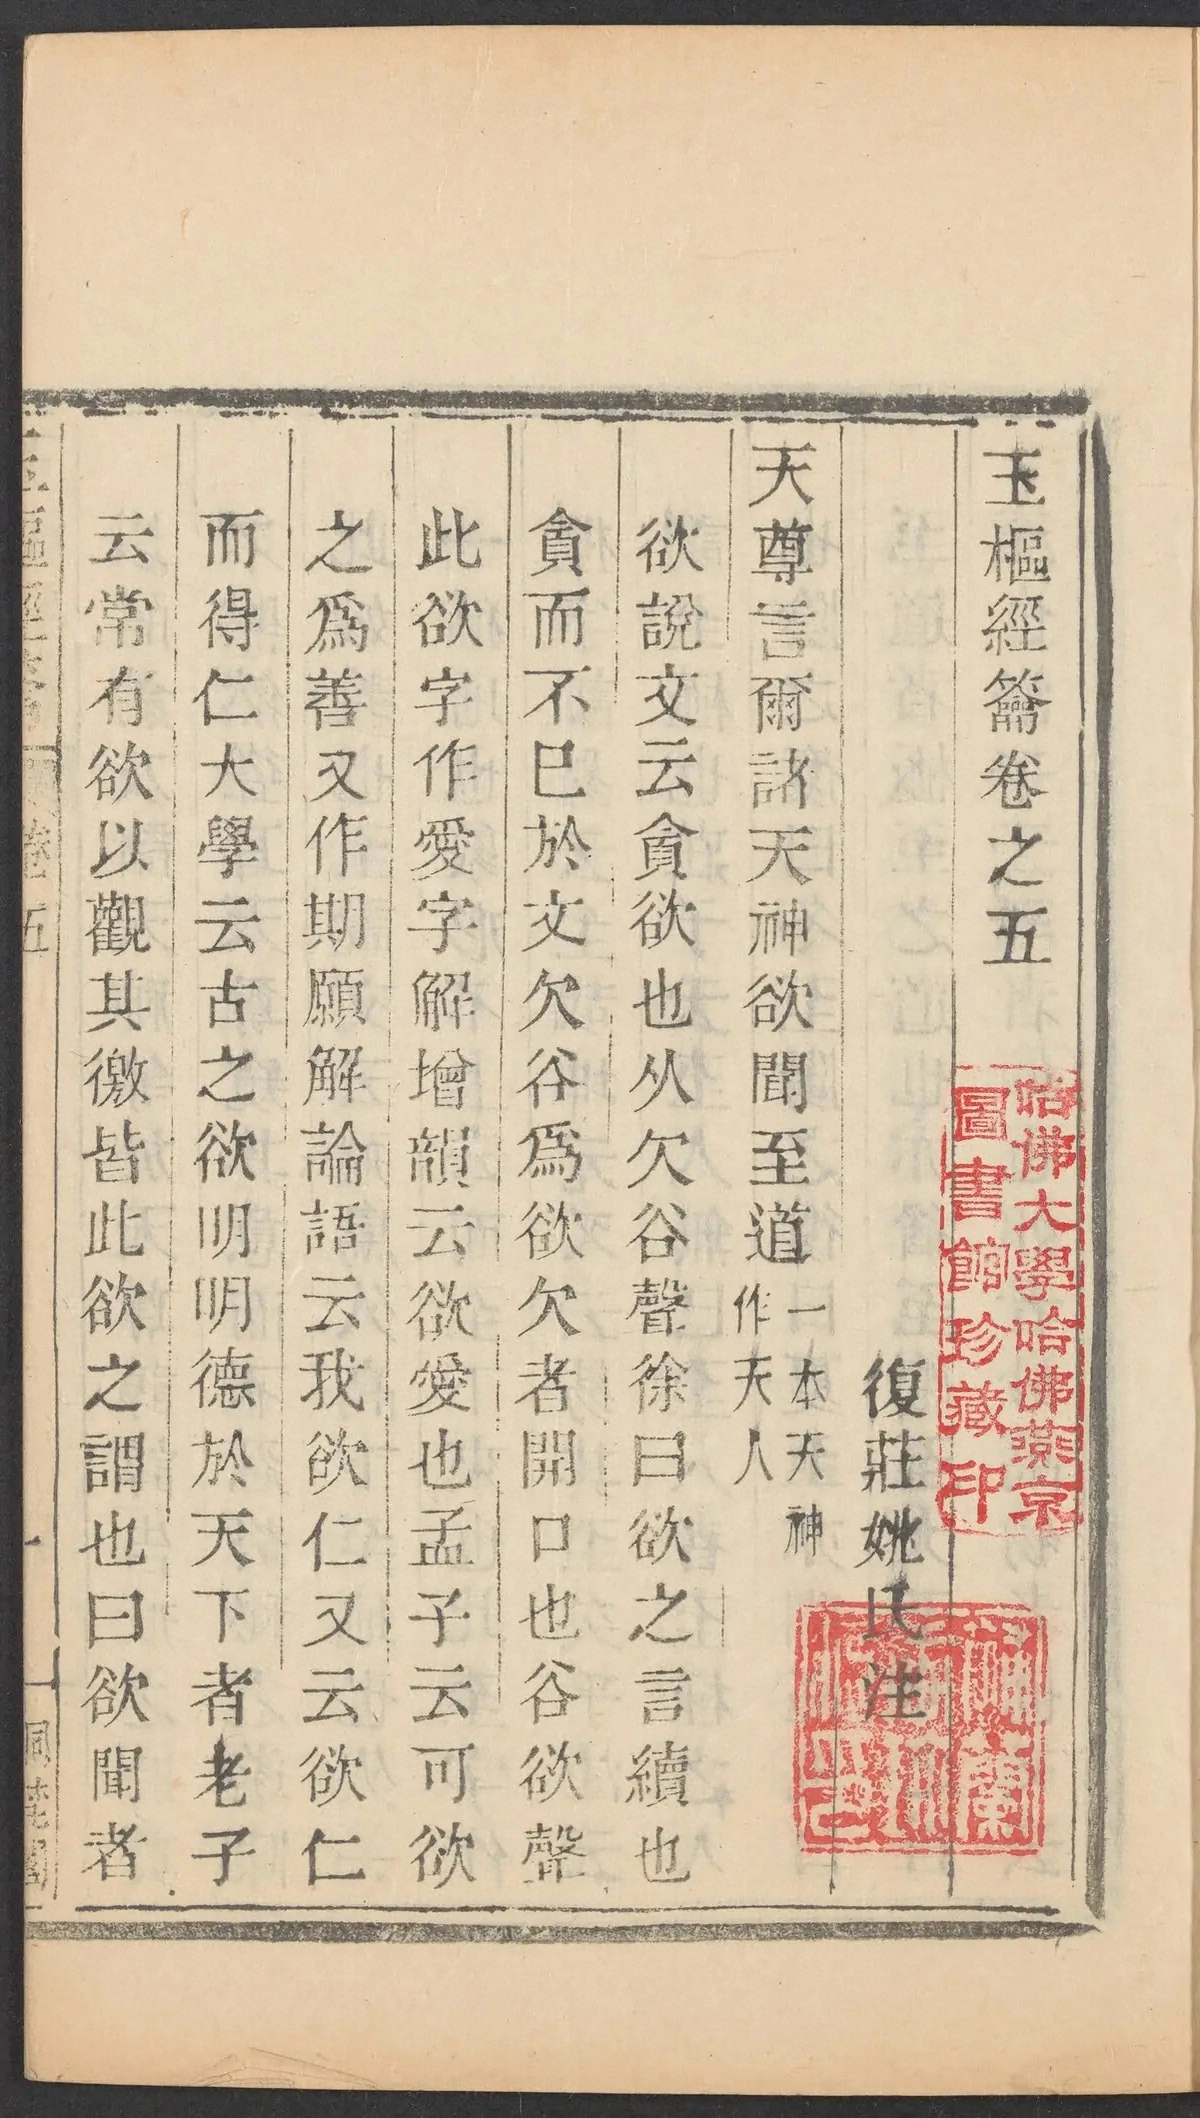 玉樞經籥卷之五
復莊姚氏注
天尊言爾諸天神欲聞至道一本天神作天人
欲說文云貪欲也从欠谷聲徐曰欲之言續也
貪而不已於文欠谷爲欲欠者開口也谷欲聲
此欲字作愛字解增韻云欲愛也孟子云可欲
之爲善又作期願解論語云我欲仁又云欲仁
而得仁大學云古之欲明明德於天下者老子
云常有欲以觀其徼皆此欲之謂也曰欲聞者
哈佛大學哈佛燕京
圖書館珍藏印